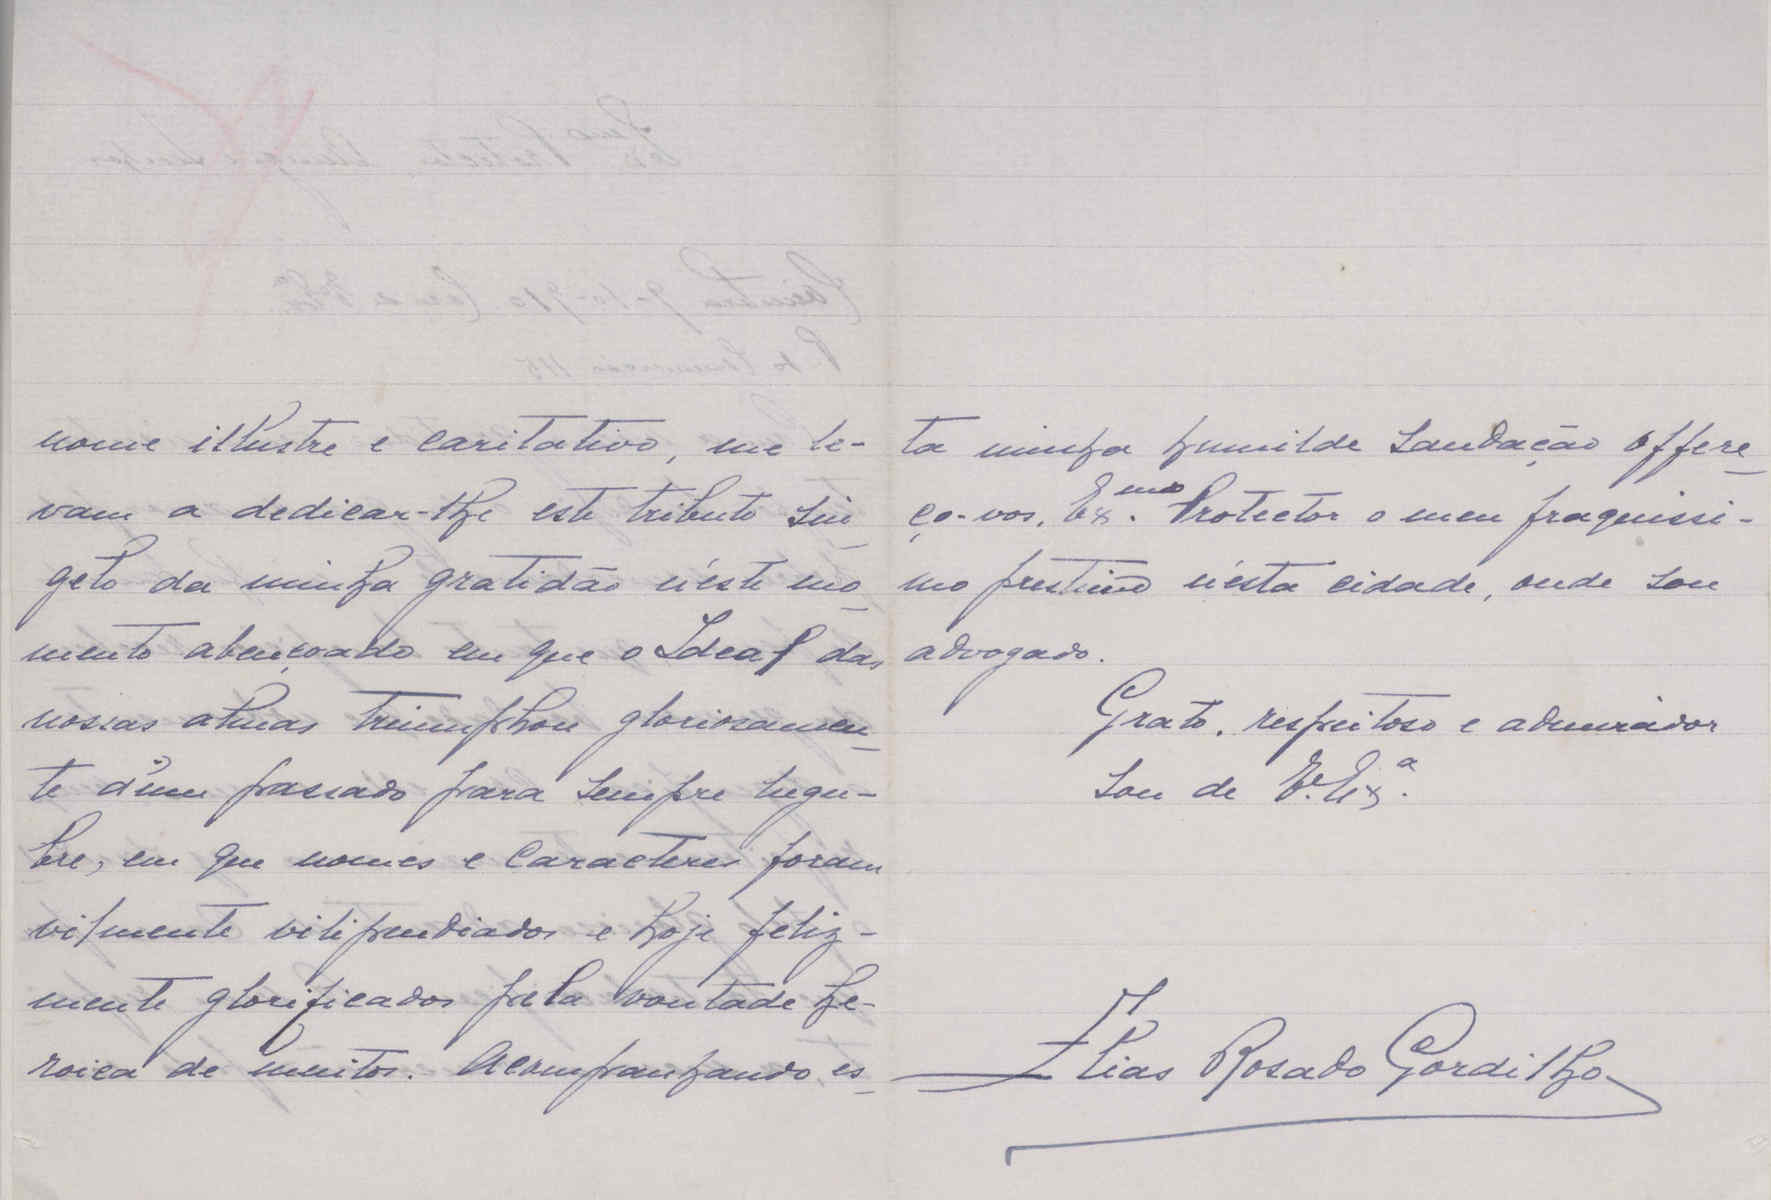 nome illustre e caritativo, me le-
vam a dedicar-lhe este tributo sin-
gelo da minha gratidão n'este mo-
mento abençoado em que o Ideal das
nossas almas triumphou gloriosamen-
te d'um passado para sempre lugu-
bre, em que nomes e caracteres foram
vilmente vilipendiados e hoje feliz-
mente glorificados pela vontade he-
roica de muitos. Acompanhando es-
ta minha humilde saudação offere-
ço-vos, Ex.mo Protector o meu fraquissi-
mo prestimo n'esta cidade, onde sou
advogado.
Grato, respeitoso e admirador
sou de V. Ex.a
Elias Rosado Gordilho